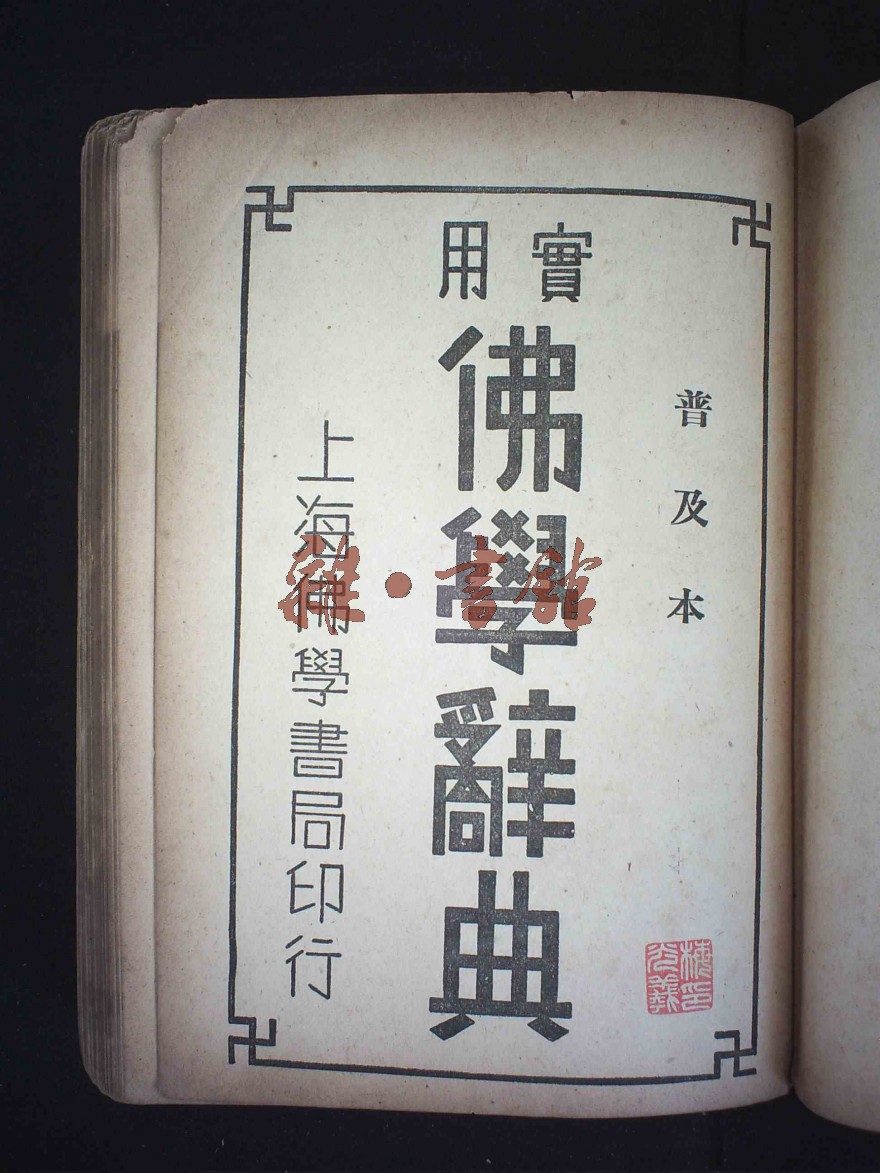 普及本
實用
佛學辭典
上海佛學書局印行
雜·書館